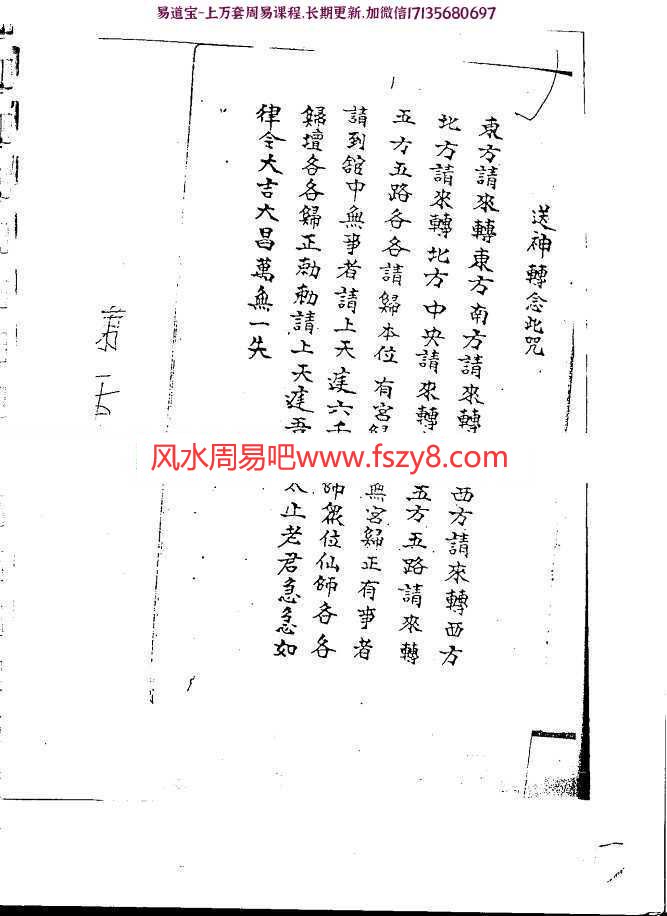 易道宝-上万套周易课程.长期更新.加微信17135680697
送神轉念此咒
東方請來轉東方南方請來轉西方請來轉西方
北方請來轉北方中央請來轉五方五路請來轉
五方五路各各請歸本位有宮歸無宮歸正有事者
請到舘中無事者請上天庭六千師衆位仙師各各
歸壇各各歸正勅勅請上天庭吾太上老君急急如
律令大吉大昌萬無一失
风水周易吧www.fszy8.com